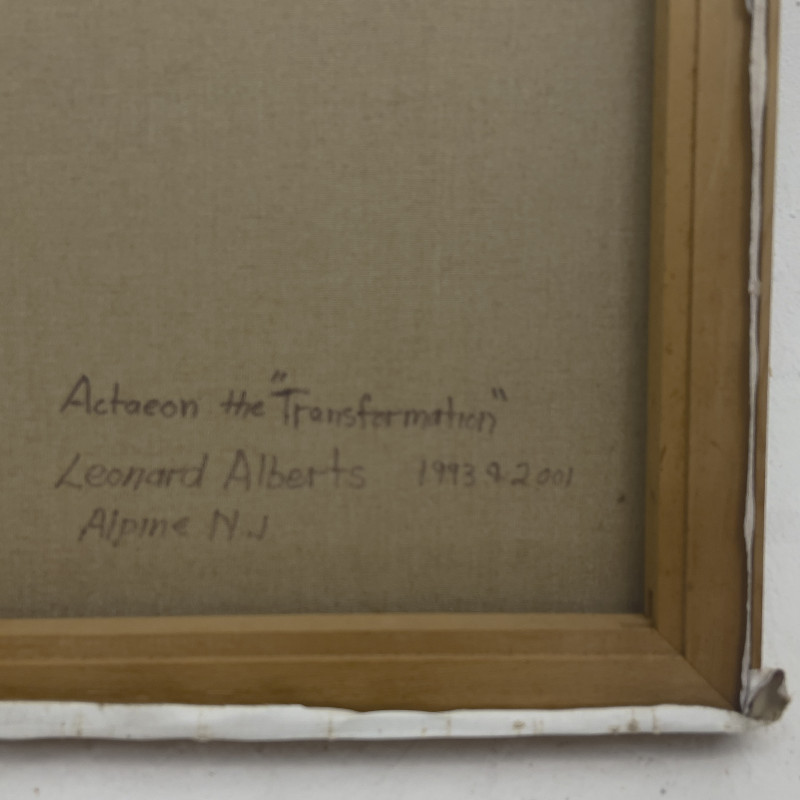 Actaeon the "Transformation"
Leonard Alberts 1993 & 2001
Alpine N.J